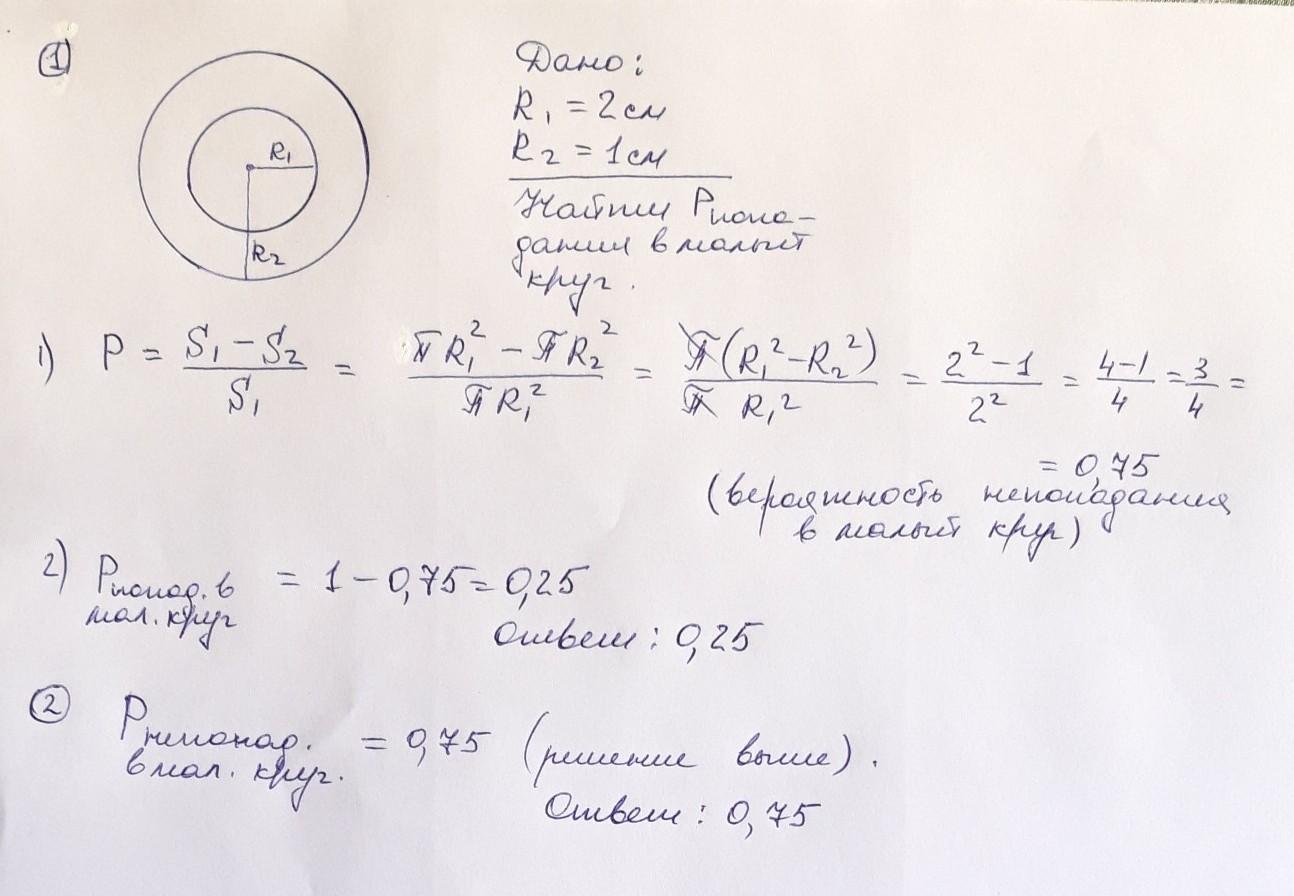 ①
R₁
R₂
Дано:
R₁ = 2 см
R₂ = 1 см
Найти Pпопа-
дания в малый
круг.
1) P = (S₁ − S₂)/S₁ = (πR₁² − πR₂²)/(πR₁²) = π(R₁² − R₂²)/(π R₁²) = (2² − 1)/2² = (4−1)/4 = 3/4 =
= 0,75
(вероятность непопадания
в малый круг)
2) Pпопад. в = 1 − 0,75 = 0,25
мал. круг
Ответ: 0,25
② Pнепопад. = 0,75 (решение выше).
в мал. круг.
Ответ: 0,75